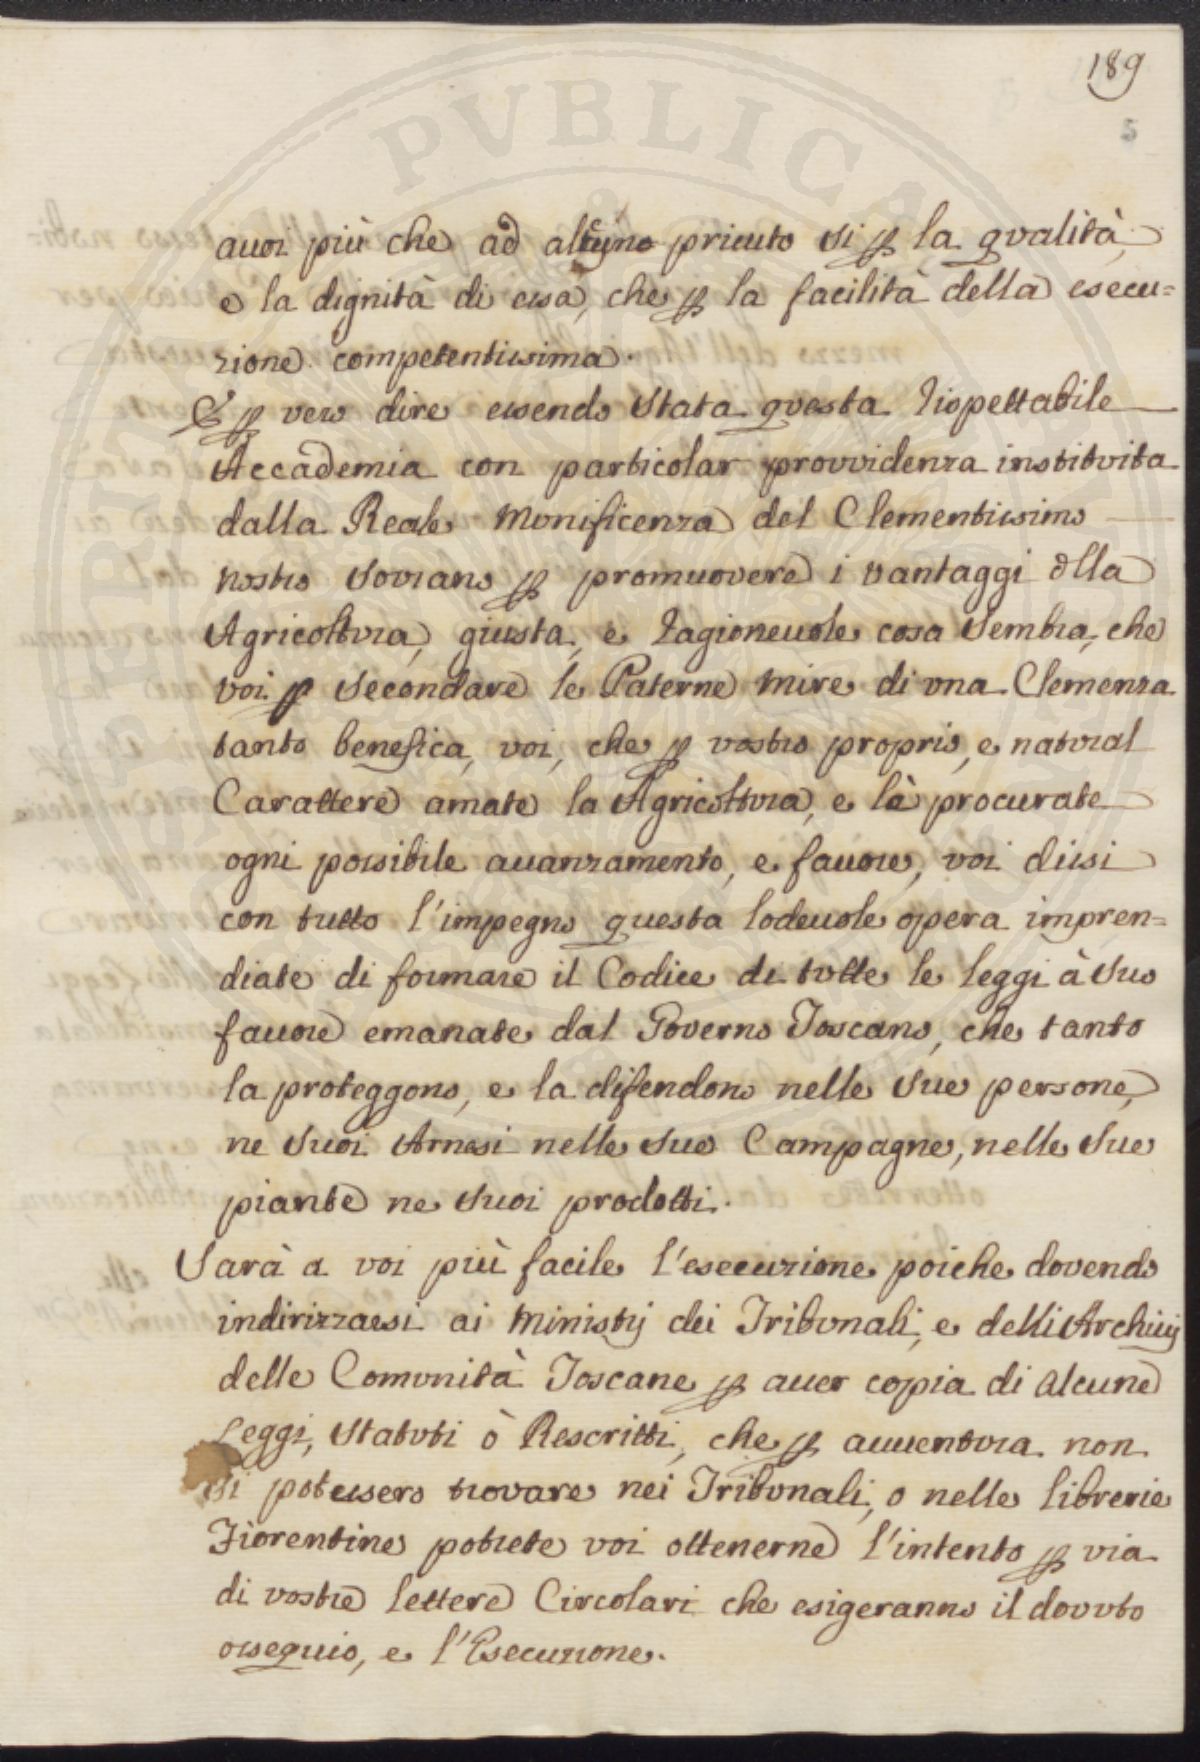 189
5
avoi più che ad alcuno privato si ꝑ la qvalità,
e la dignità di essa, che ꝑ la facilità della esecu=
zione competentissima.
E ꝑ vero dire essendo Stata questa Rispettabile
Accademia con particolar provvidenza institvita
dalla Reale Mvnificenza del Clementissimo
nostro Sovrano ꝑ promuovere i vantaggi dlla
Agricoltvra, giusta, e Ragionevole cosa Sembra, che
voi ꝑ Secondare le Paterne Mire di vna Clemenza
tanto benefica, voi, che ꝑ vostro proprio, e natvral
Carattere amate la Agricoltvra, e là procurate
ogni possibile avanzamento, e favore, voi dissi
con tutto l'impegno questa lodevole opera impren=
diate di formare il Codice di tvtte le leggi à Suo
favore emanate dal Governo Toscano, che tanto
la proteggono, e la difendono nelle Sue persone,
ne Suoi Arnesi nelle Sue Campagne, nelle Sue
piante ne Suoi prodotti.
Sarà a voi più facile l'esecuzione poiche dovendo
indirizzarsi ai Ministrj dei Tribvnali, e delli Archivij
delle Comvnità Toscane ꝑ aver copia di alcune
Leggi, Statvti ò Rescritti, che ꝑ avventvra non
si potessero trovare nei Tribvnali, o nelle librerie
Fiorentine potrete voi ottenerne l'intento ꝑ via
di vostre lettere Circolari che esigeranno il dovvto
ossequio, e l'Esecuzione.
PVBLICAE